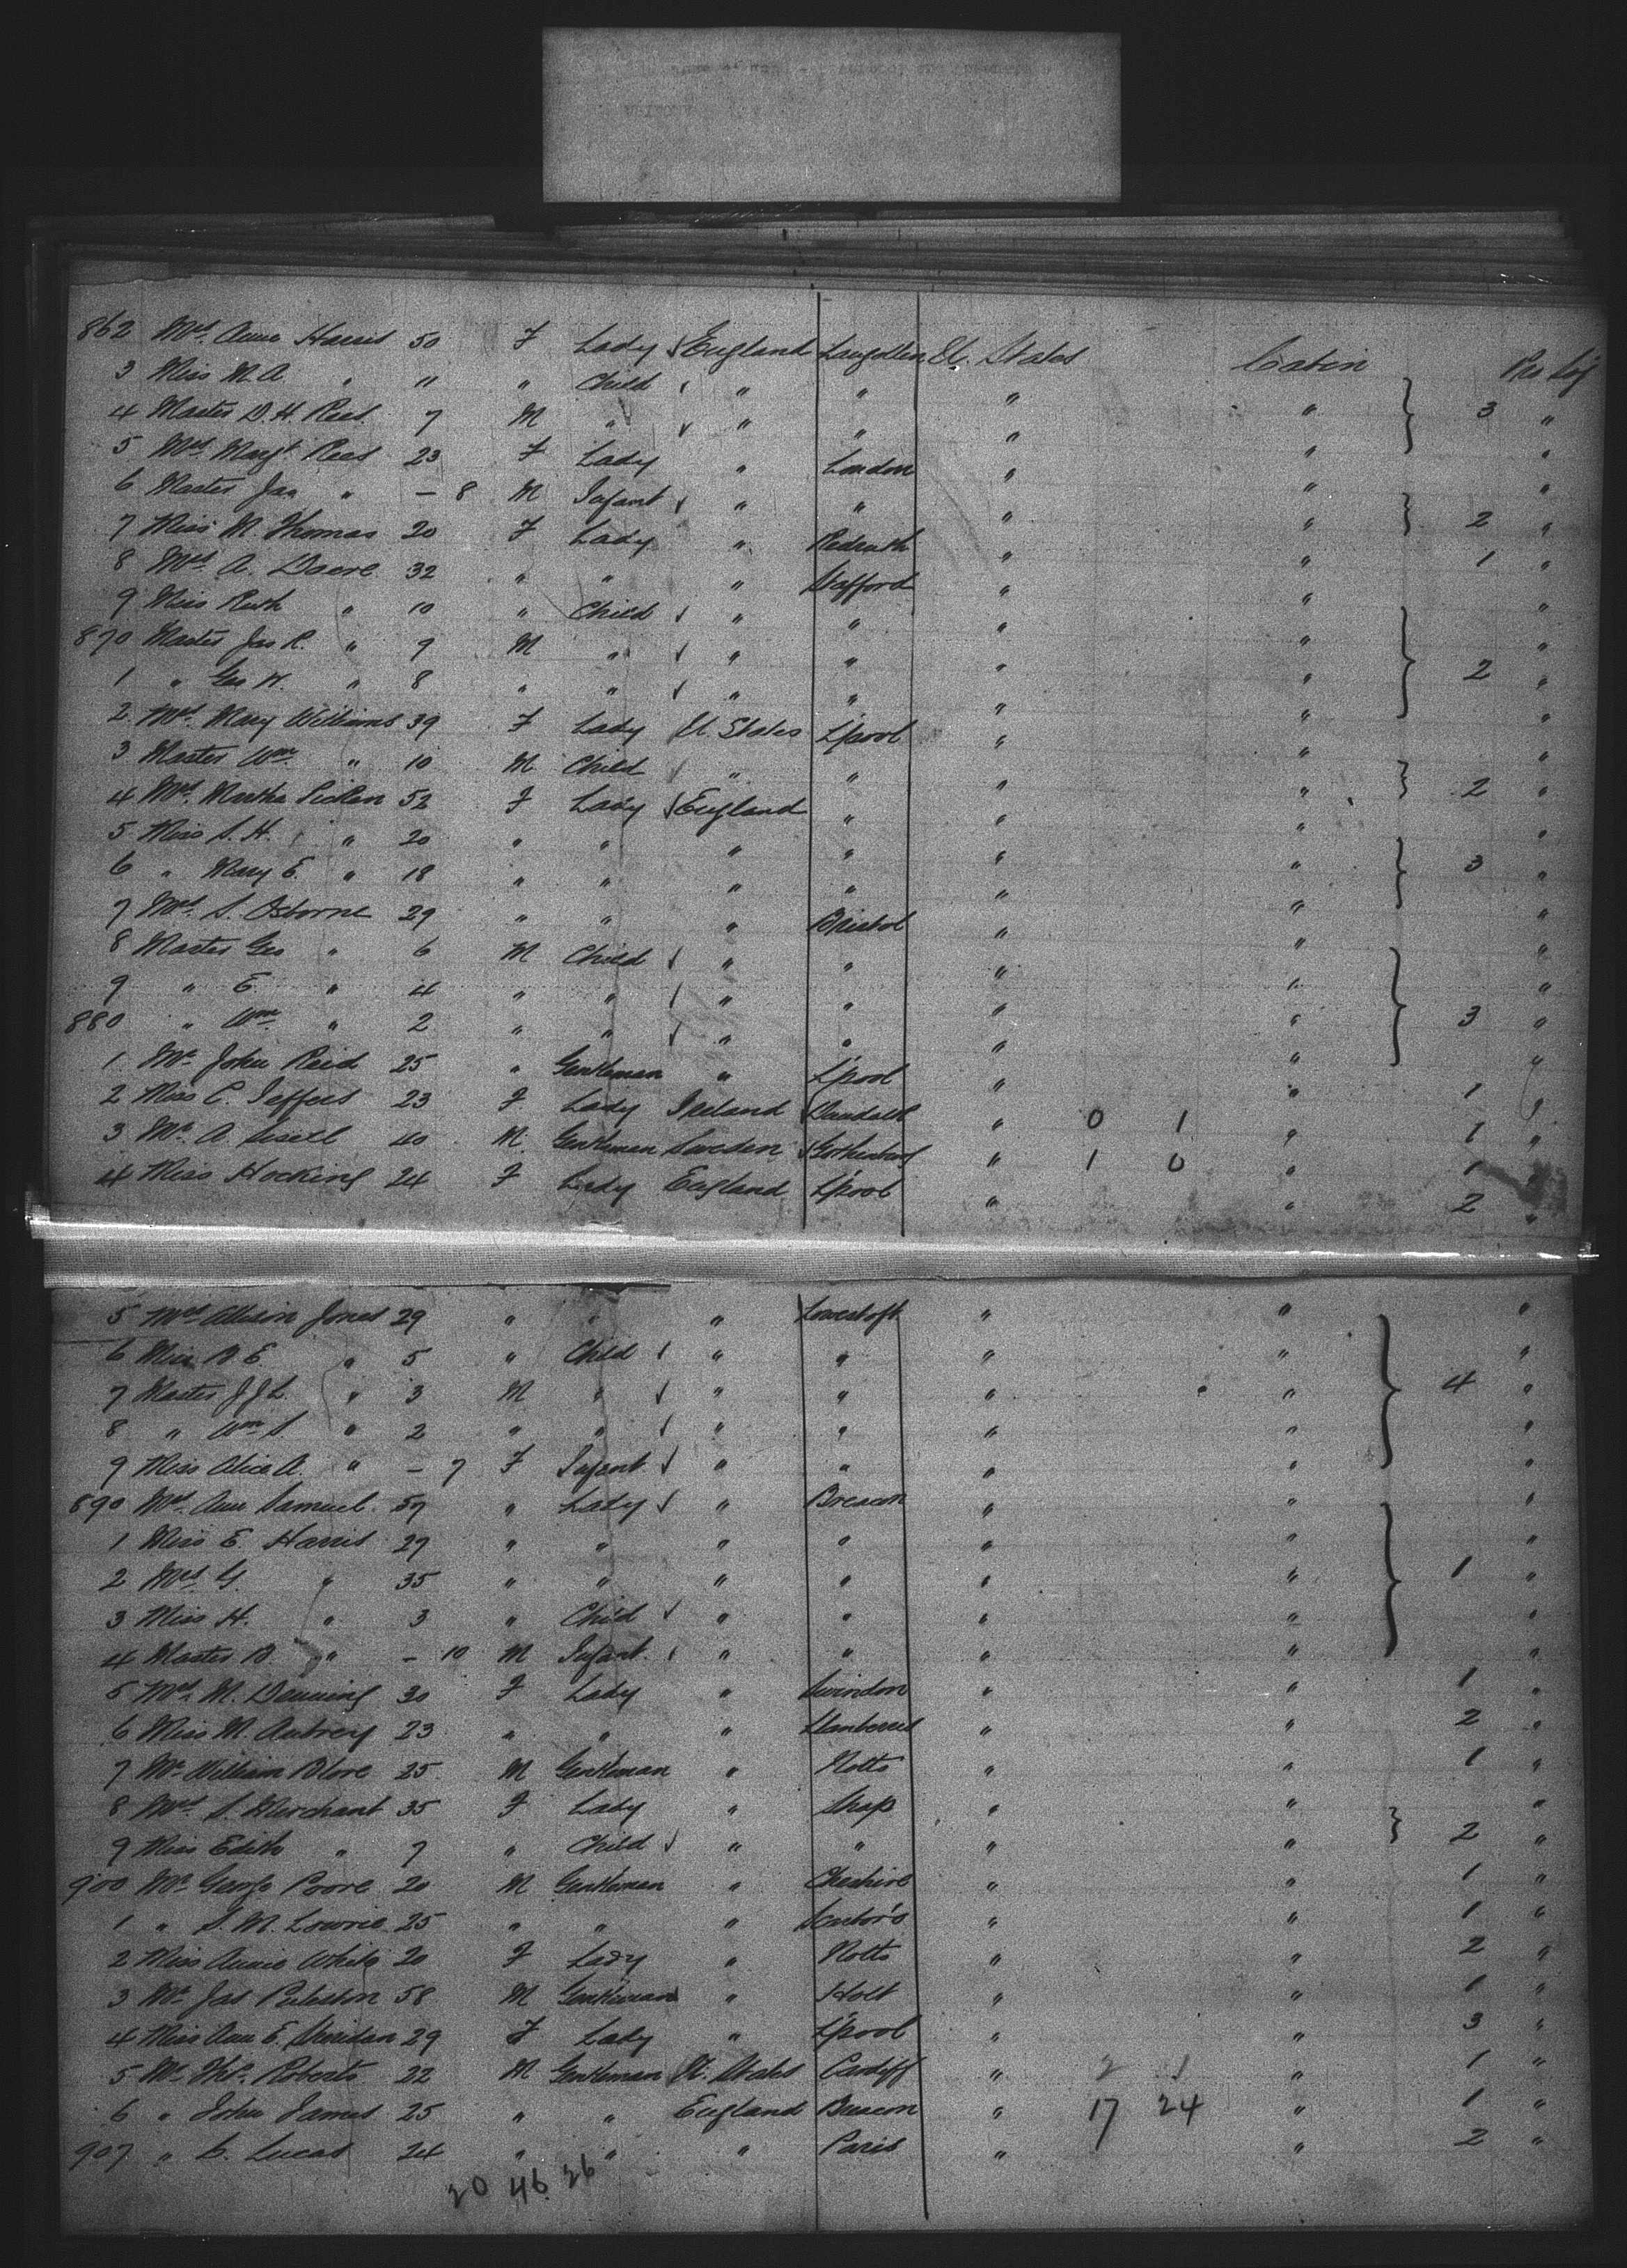 862 Mrs. Anna Harris 50 F Lady England U. States Cabin
3 Miss M. A. " 11 " Child " " " " 3 "
4 Master D. H. Rees 7 M " " " " " "
5 Mrs. Margt. Rees 23 F Lady " London " " "
6 Master Jas " - 8 M Infant " " " " 2 "
7 Miss M. Thomas 20 F Lady " Redruth " " 1 "
8 Mrs. A. 32 " " " Stafford " " "
9 Miss Ruth " 10 " Child " " " " "
870 Master Jas R. " 9 M " " " " " 2 "
1 " Geo W. " 8 " " " " " " "
2 Mrs. Mary Williams 39 F Lady U. States L'pool " " "
3 Master Wm. " 10 M Child " " " " 2 "
4 Mrs. Martha 52 F Lady England " " " "
5 Miss S. H. " 20 " " " " " " 3 "
6 " Mary E. " 18 " " " " " " "
7 Mrs. S. Osborne 29 " " " Bristol " " "
8 Master Geo " 6 M Child " " " " "
9 " E. " 4 " " " " " " 3 "
880 " Wm. " 2 " " " " " " "
1 Mr. John Reid 25 " Gentleman " L'pool " " 1 "
2 Miss C. Jeffers 23 F Lady Ireland Dundalk " 0 1 " 1 "
3 Mr. A. 40 M Gentleman Sweden Gothenburg " 1 0 " 1 "
4 Miss Hocking 24 F Lady England L'pool " " 2 "
5 Mrs. Alison Jones 29 " " " Lowestoft " " "
6 Miss B E. " 5 " Child " " " " "
7 Master J J L. " 3 M " " " " " 4 "
8 " Wm S. " 2 " " " " " " "
9 Miss Alice A. " - 7 F Infant " " " " "
890 Mrs. Ann Samuel 57 " Lady " Breacon " " "
1 Miss E. Harris 27 " " " " " " "
2 Mrs. G. " 35 " " " " " " 1 "
3 Miss H. " 3 " Child " " " " "
4 Master B. " - 10 M Infant " " " " "
5 Mrs. M. Denning 30 F Lady " Swindon " " 1 "
6 Miss M. Aubrey 23 " " " Llanberis " " 2 "
7 Mr. William Blore 25 M Gentleman " Notts " " 1 "
8 Mrs. S. Merchant 35 F Lady " Shap " " "
9 Miss Edith " 7 " Child " " " " 2 "
900 Mr. George Poore 20 M Gentleman " Cheshire " " 1 "
1 " S. M. Lowrie 25 " " " Scarbor'o " " 1 "
2 Miss Annie White 20 F Lady " Notts " " 2 "
3 Mr. Jas Puleston 58 M Gentleman " Holt " " 1 "
4 Miss Ann E. Sheridan 29 F Lady " L'pool " " 3 "
5 Mr. Thos. Roberts 22 M Gentleman U. States Cardiff " 2 1 " 1 "
6 " John James 25 " " England Breacon " 17 24 " 1 "
907 " C. Lucas 24 " " " Paris " " 2 "
20 46 26